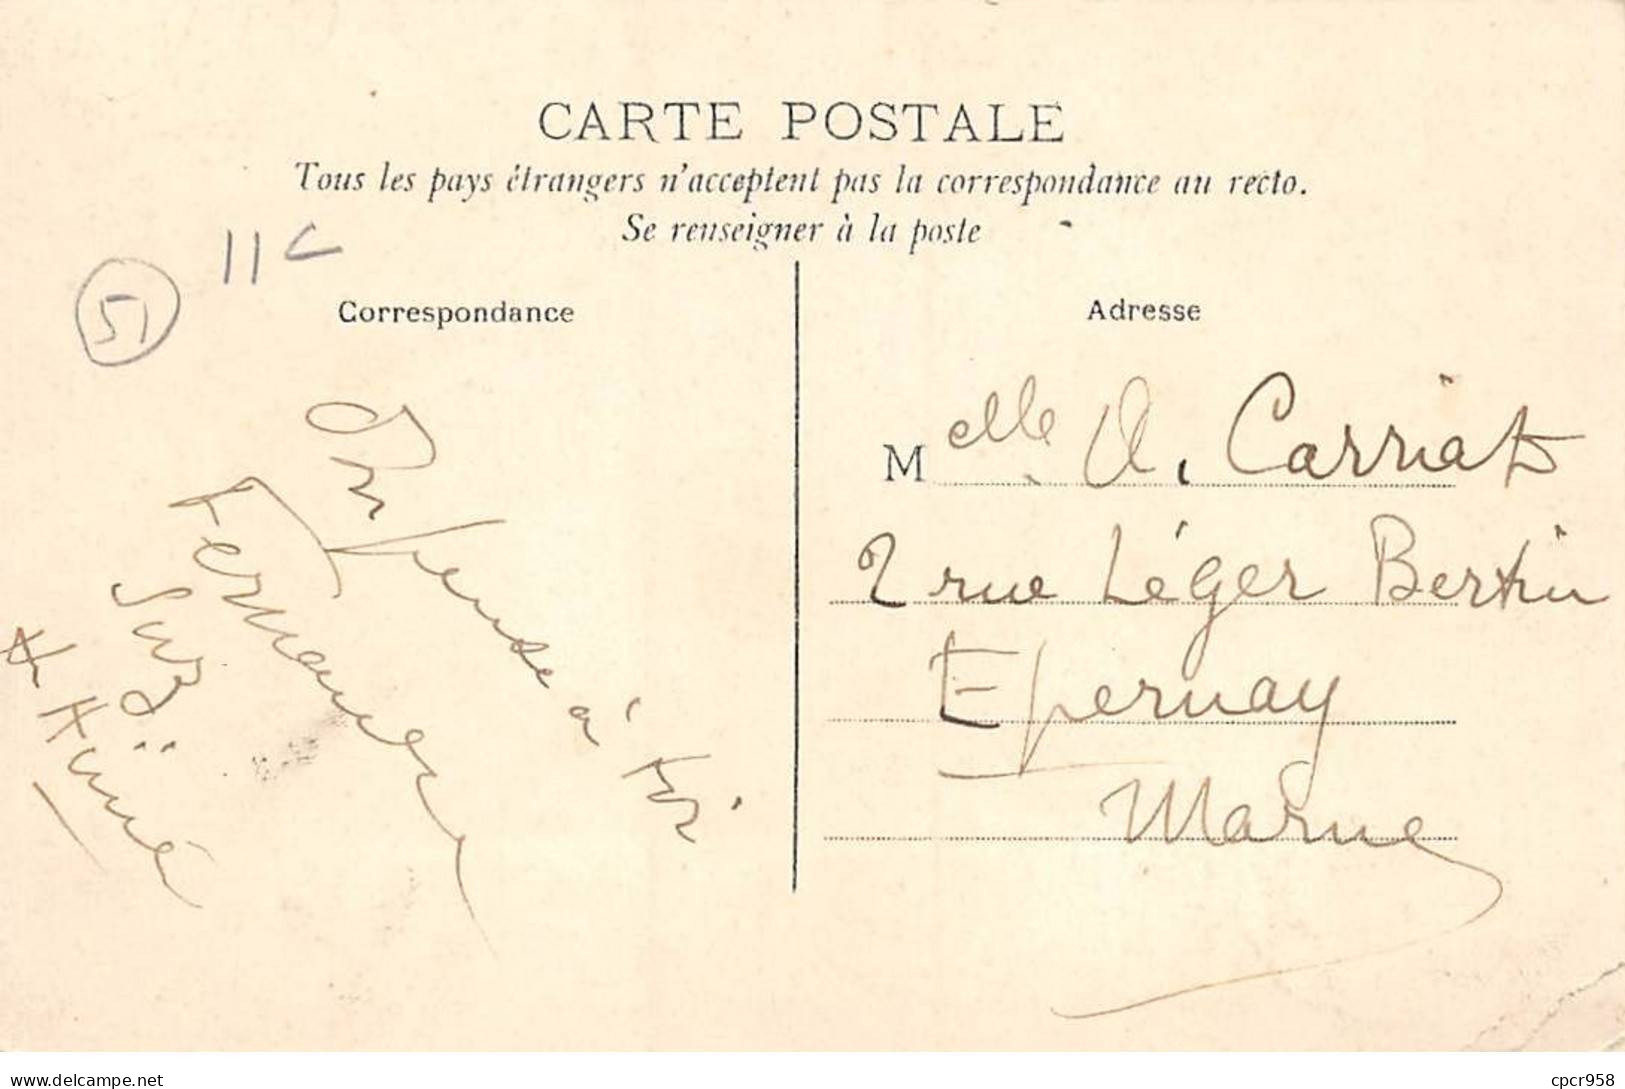 CARTE POSTALE
Tous les pays étrangers n'acceptent pas la correspondance au recto.
Se renseigner à la poste
11€
51
Correspondance
Adresse
On pense à toi
Fernand
Suz
& Aimé
Melle A. Carriat
2 rue Léger Bertin
Epernay
Marne
delcampe.net
cpcr958